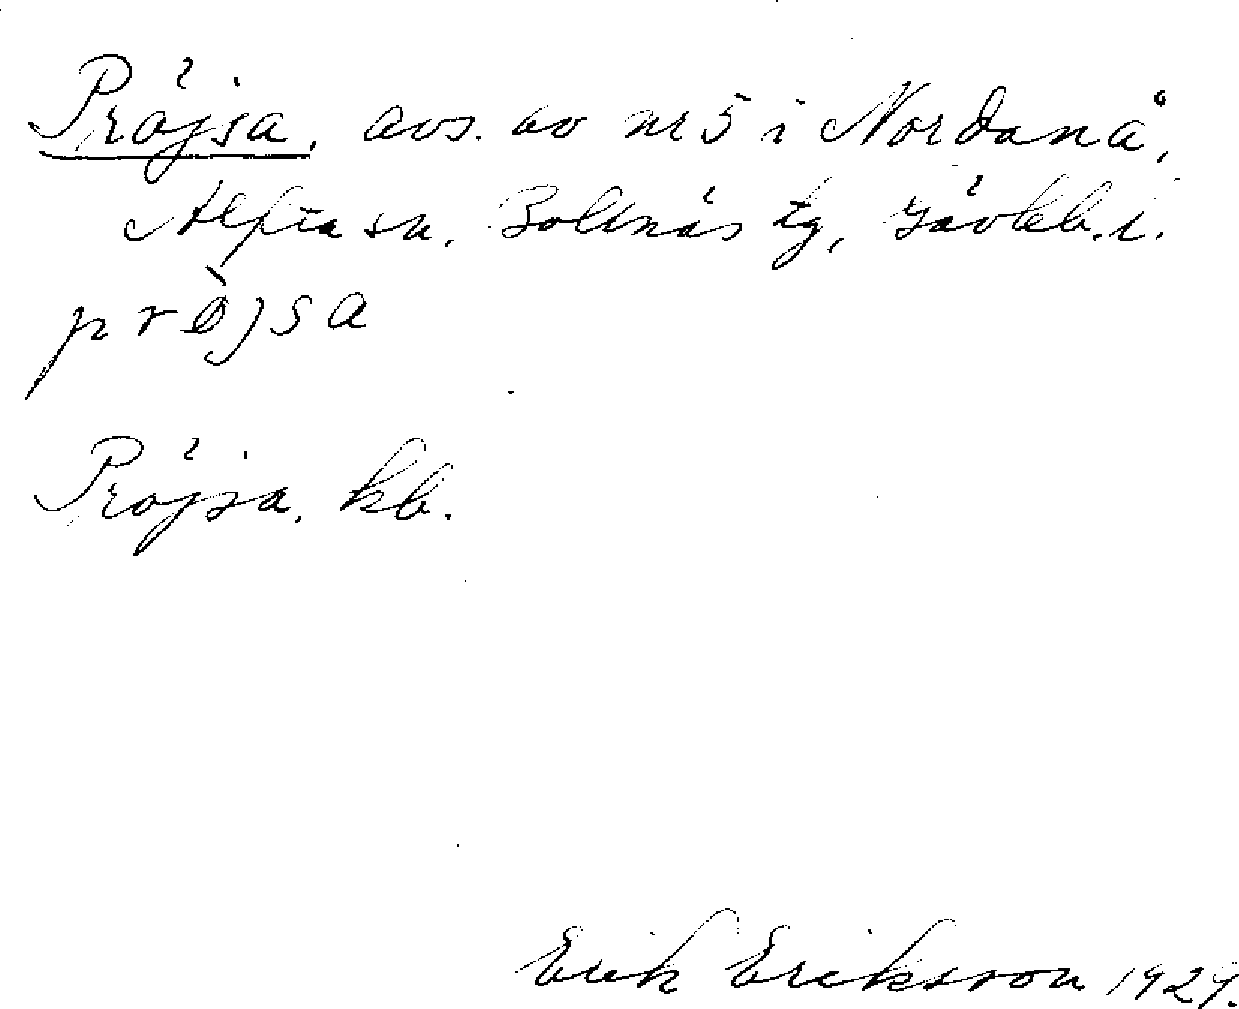 Pröjsa, avs. av nr 5 i Nordanå,
Alfta sn, Bollnäs tg, Gävleb. l.
prø̀jsa
Pröjsa, kb.
Erik Eriksson 1927.